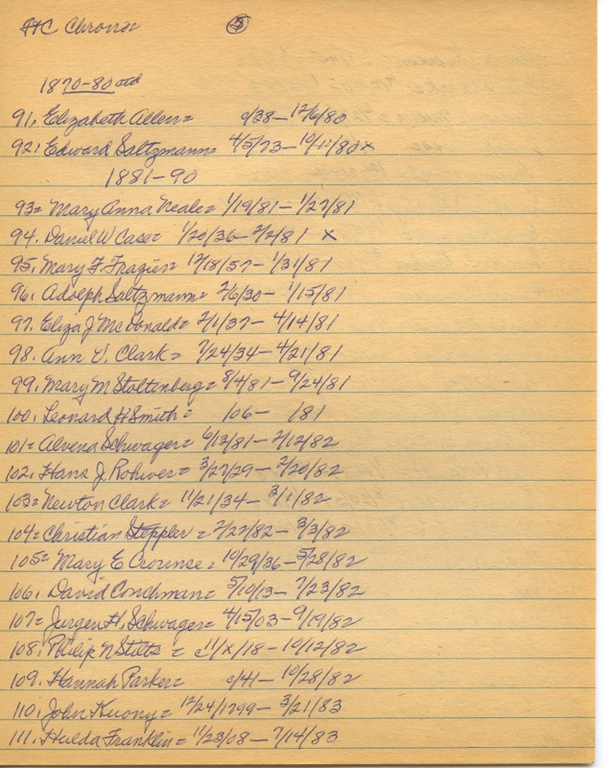 HC Chrono ⑤
1870-80 ctd
91. Elizabeth Allen = c/38 - 12/6/80
92. Edward Saltzmann = 4/5/73 - 10/11/80 x
1881-90
93 = Mary Anna Neale = 1/19/81 - 1/27/81
94. Daniel W Case = 1/20/36 - 2/2/81 x
95. Mary F. Frazier = 12/18/57 - 1/31/81
96. Adolph Saltzmann = 2/6/30 - 1/15/81
97. Eliza J McDonald = 2/1/37 - 4/14/81
98. Ann V. Clark = 7/24/34 - 4/21/81
99. Mary M Stoltenberg = 8/4/81 - 9/24/81
100. Leonard H Smith = /06 - /81
101 = Alvena Schwager = 6/13/81 - 2/12/82
102. Hans J Rohwer = 3/27/29 - 2/20/82
103 = Newton Clark = 11/21/34 - 3/1/82
104 = Christian Steppler = 2/22/82 - 3/3/82
105 = Mary E Crounse = 10/29/36 - 5/28/82
106. David Conchman = 5/10/13 - 7/23/82
107 = Jurgen H. Schwager = 4/15/03 - 9/19/82
108. Philip N Stilts = 11/x/18 - 10/12/82
109. Hannah Parker = c/41 - 10/28/82
110. John Kuony = 12/24/1799 - 3/21/83
111. Hulda Franklin = 11/23/08 - 7/14/83